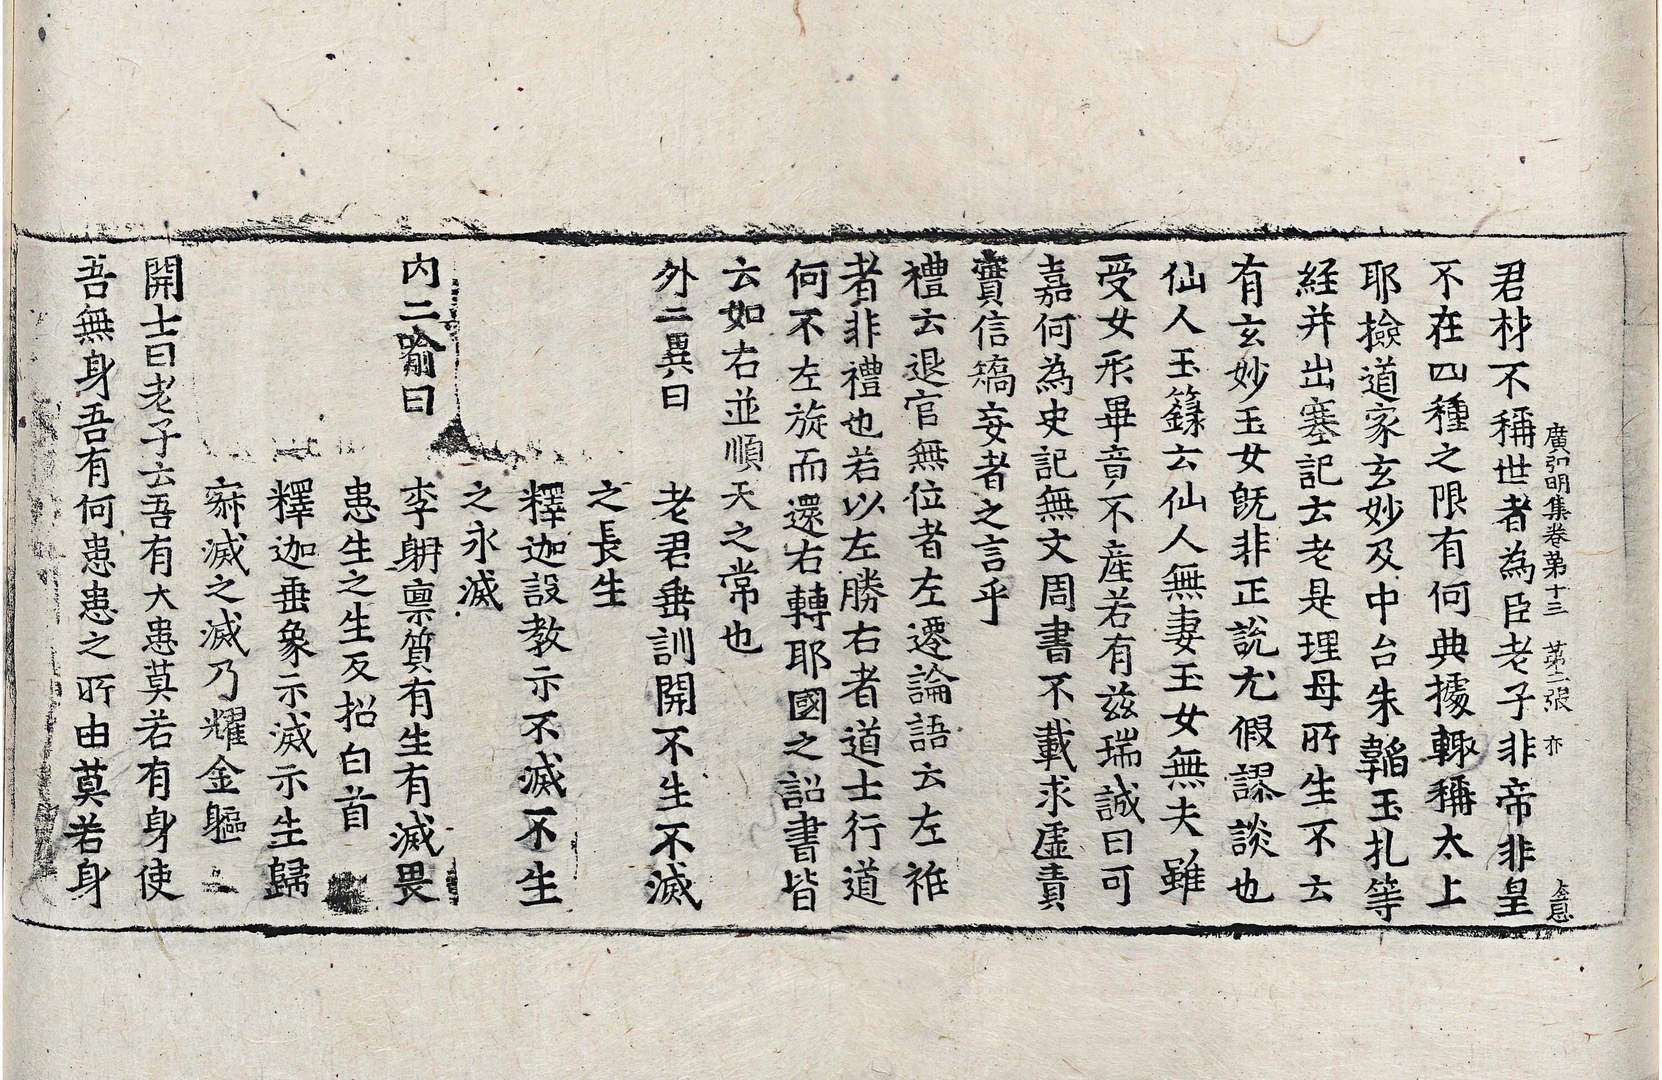 廣弘明集卷第十三 第二張 亦
君材不稱世者為臣老子非帝非皇
不在四種之限有何典據輙稱太上
耶撿道家玄妙及中台朱韜玉扎等
経并出塞記云老是理母所生不云
有玄妙玉女旣非正說尤假謬談也
仙人玉籙云仙人無妻玉女無夫雖
受女形畢竟不産若有兹瑞誠曰可
嘉何為史記無文周書不載求虛責
實信矯妄者之言乎
禮云退官無位者左遷論語云左衽
者非禮也若以左勝右者道士行道
何不左旋而還右轉耶國之詔書皆
云如右並順天之常也
外二異曰 老君垂訓開不生不滅
之長生
釋迦設教示不滅不生
之永滅
内二喻曰 李耼禀質有生有滅畏
患生之生反招白首
釋迦垂象示滅示生歸
寂滅之滅乃耀金軀
開士曰老子云吾有大患莫若有身使
吾無身吾有何患患之所由莫若身